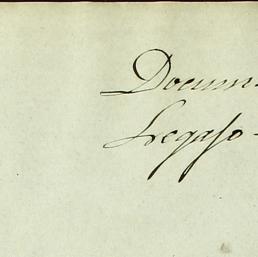 Docum
Legajo